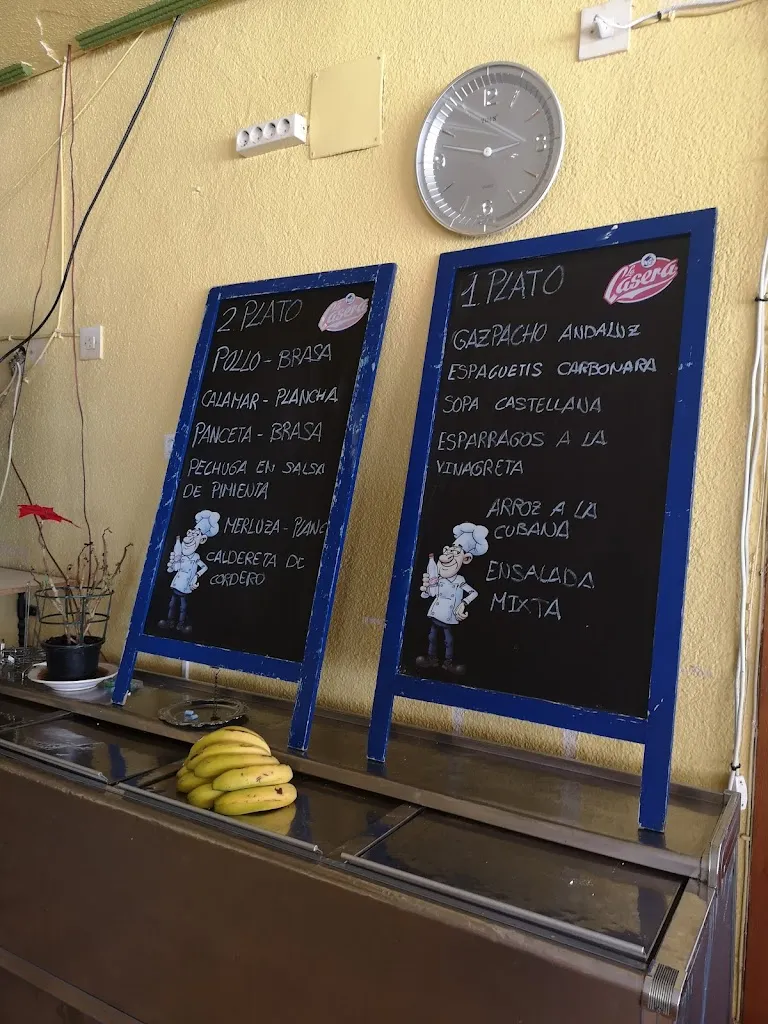 2 PLATO
La Casera
POLLO - BRASA
CALAMAR - PLANCHA
PANCETA - BRASA
PECHUGA EN SALSA
DE PIMIENTA
MERLUZA - PLANC
CALDERETA DE
CORDERO
1 PLATO
La Casera
GAZPACHO ANDALUZ
ESPAGUETIS CARBONARA
SOPA CASTELLANA
ESPARRAGOS A LA
VINAGRETA
ARROZ A LA
CUBANA
ENSALADA
MIXTA